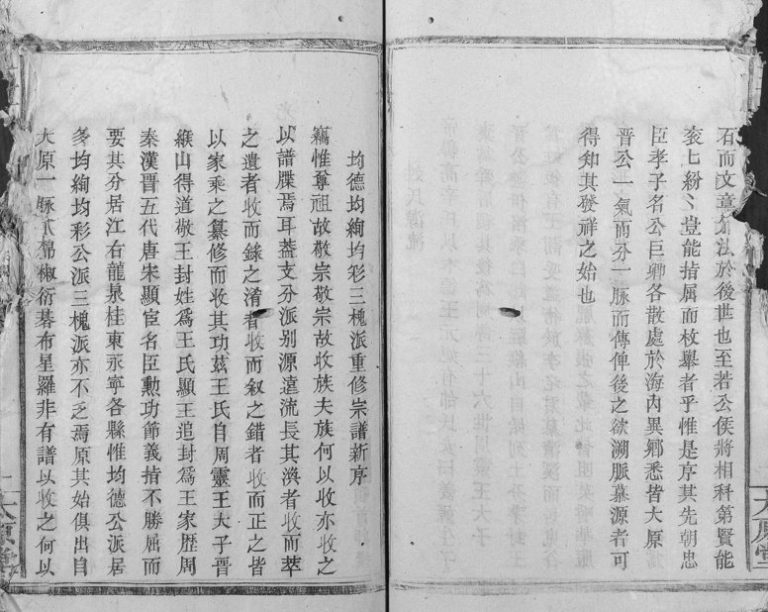 石而文章爲法於後世也至若公侯將相科第賢能
衮七紛〻豈能指屈而枚舉者乎惟是序其先朝忠
臣孝子名公巨卿各散處於海內異鄉悉皆大原
晉公一氣而分一脉而傳俾後之欲溯脈摹源者可
得知其發祥之始也
均德均絢均彩三槐派重修宗譜新序
竊惟尊祖故敬宗敬宗故收族夫族何以收亦收之
以譜牒焉耳蓋支分派别源遠流長其渙者收而萃
之遺者收而錄之淆者收而叙之錯者收而正之皆
以家乘之纂修而收其功玆王氏自周靈王大子晉
緱山得道敬王封姓爲王氏顯王追封爲王家歷周
秦漢晉五代唐宋顯宦名臣勲功節義指不勝屈而
要其分居江右龍泉桂東永寧各縣惟均德公派居
多均絢均彩公派三槐派亦不乏焉原其始俱出自
大原一脉瓜綿椒衍碁布星羅非有譜以收之何以
大原堂